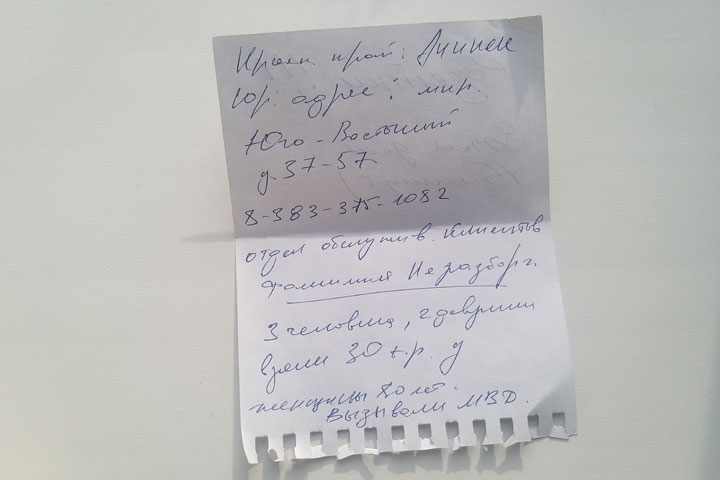 Красн. край: Ачинск
Юр. адрес: мкр.
Юго-Восточный
д. 37-57
8-383-375-1082
отдел обслужив. клиентов
фамилия Неразборч.
3 человека, 2 девушки
взяли 30 т.р. у
женщины 80 лет.
Вызывали МВД.